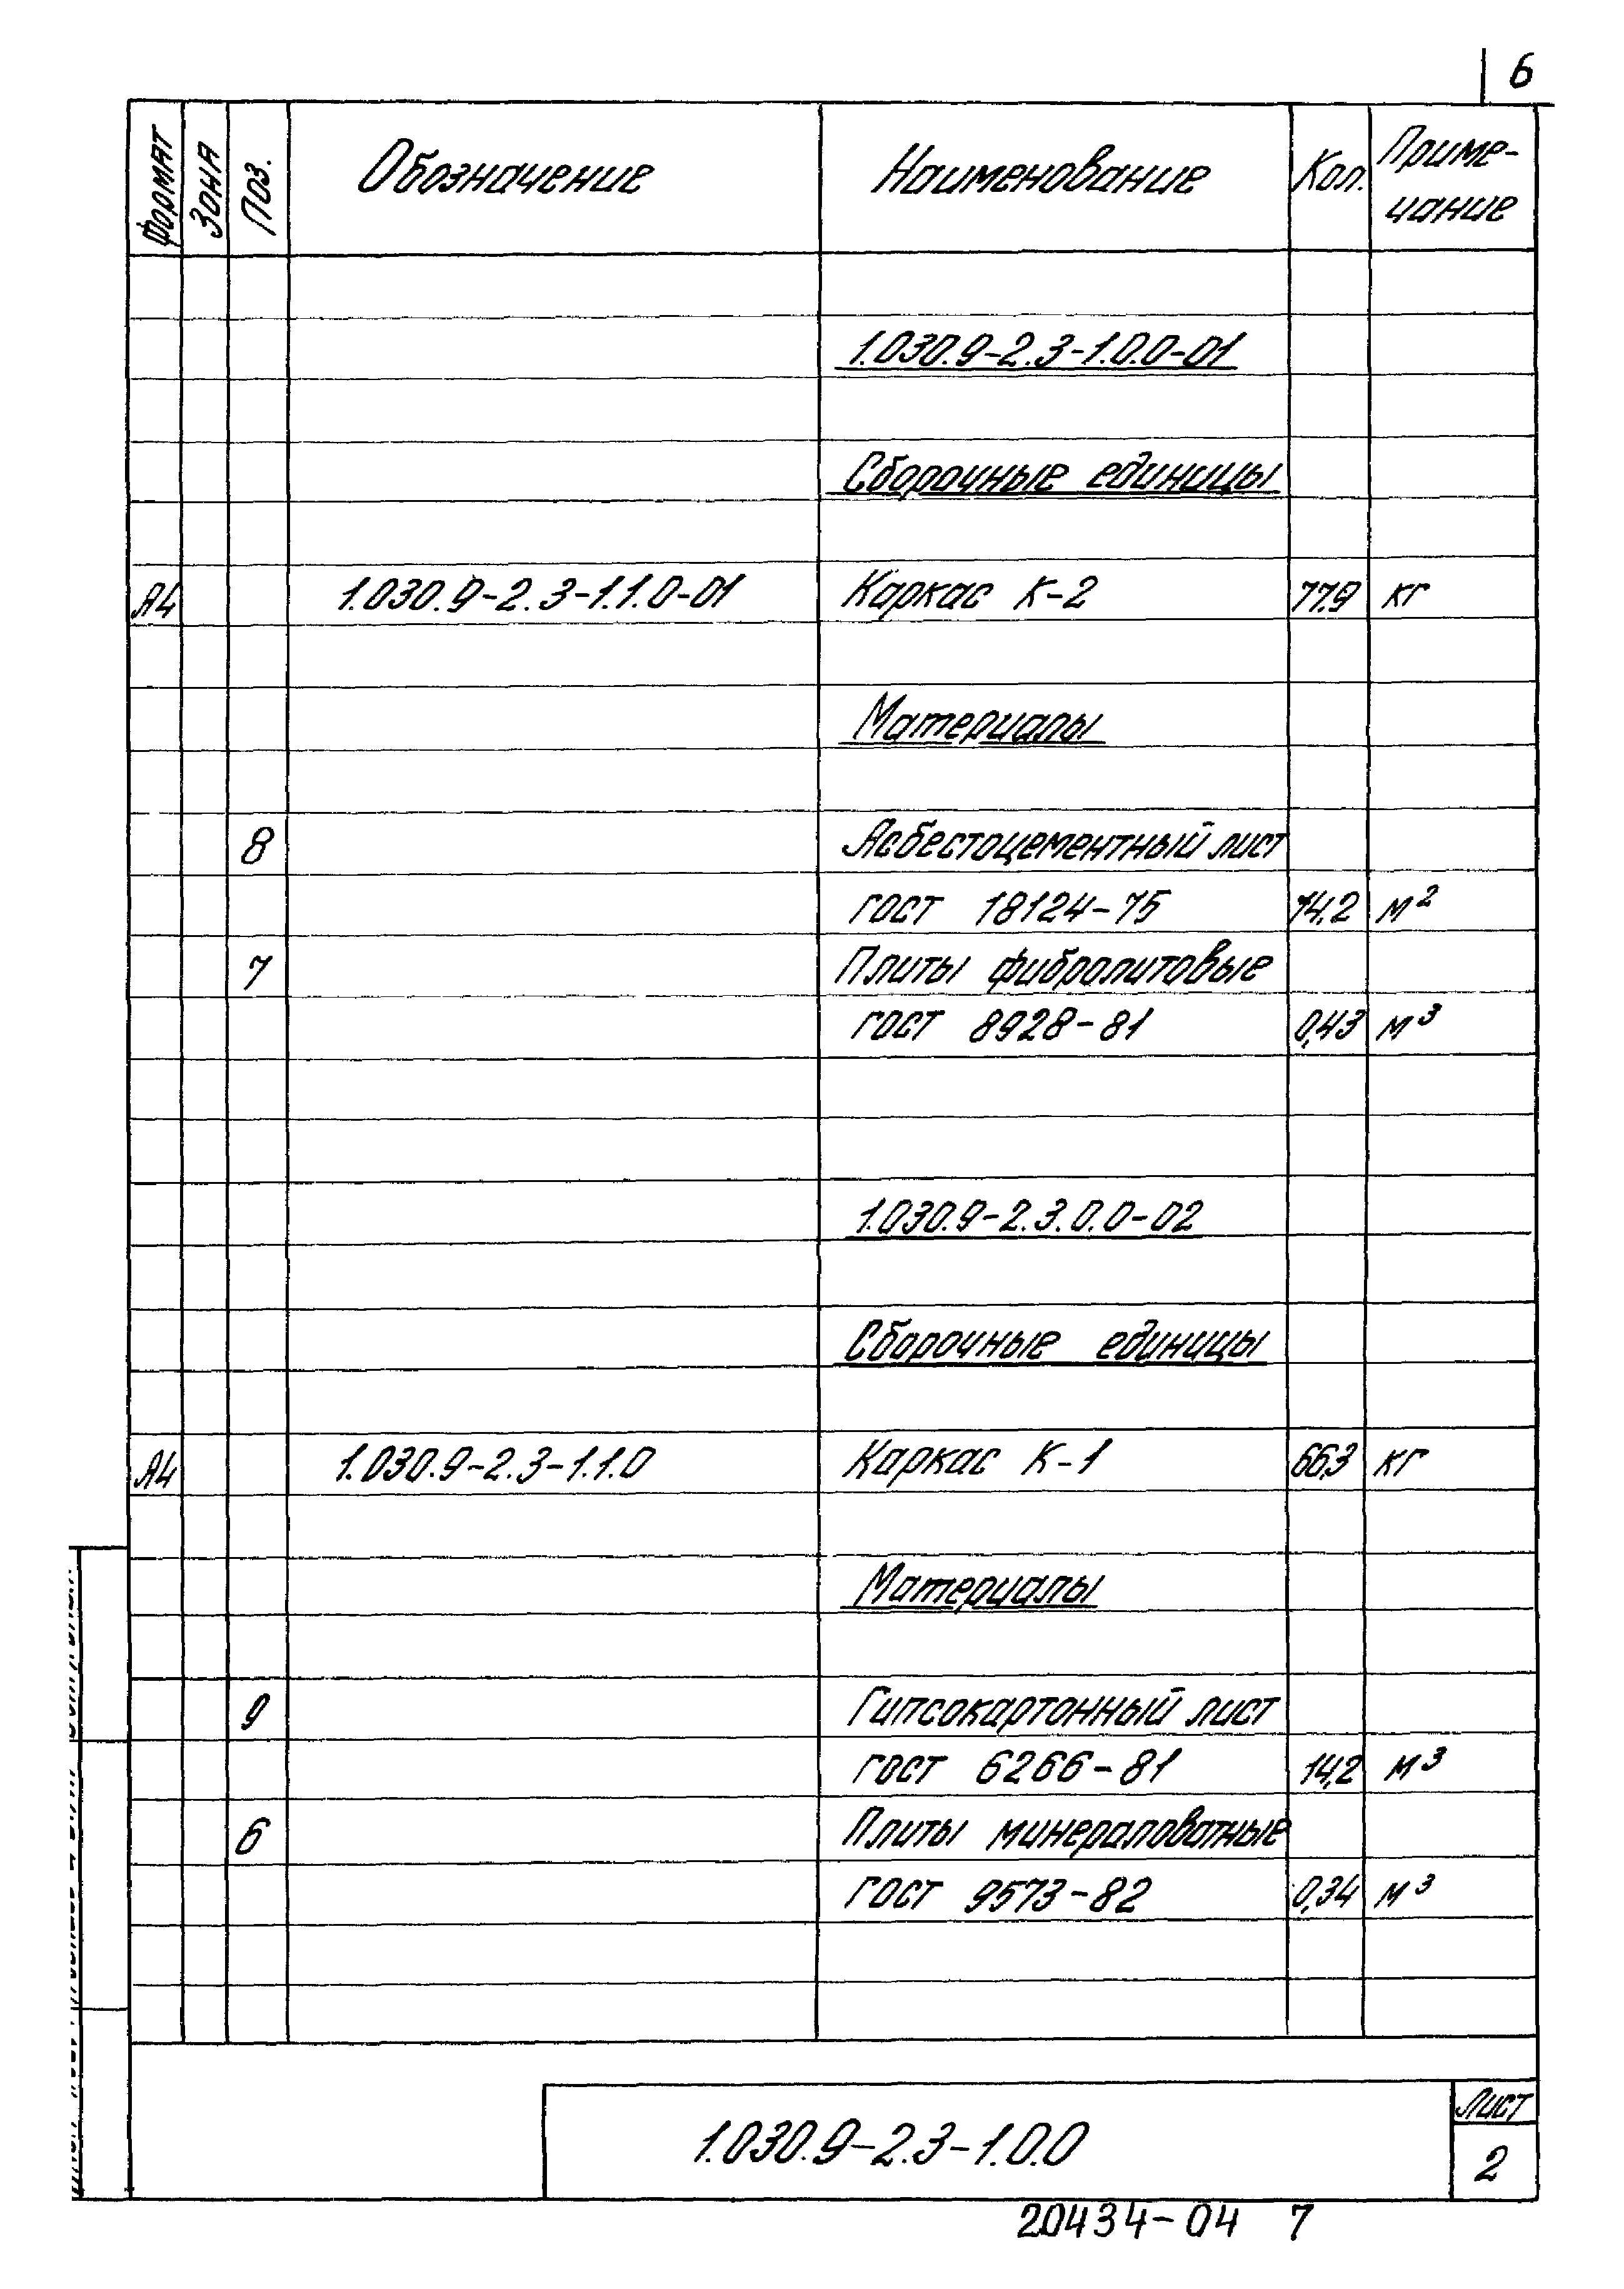 6
Формат Зона Поз. Обозначение Наименование Кол. Приме-
чание
1.030.9-2.3-1.0.0-01
Сборочные единицы
А4 1.030.9-2.3-1.1.0-01 Каркас К-2 77,9 кг
Материалы
8 Асбестоцементный лист
ГОСТ 18124-75 14,2 м²
7 Плиты фибролитовые
ГОСТ 8928-81 0,43 м³
1.030.9-2.3.0.0-02
Сборочные единицы
А4 1.030.9-2.3-1.1.0 Каркас К-1 66,3 кг
Материалы
9 Гипсокартонный лист
ГОСТ 6266-81 14,2 м³
6 Плиты минераловатные
ГОСТ 9573-82 0,34 м³
1.030.9-2.3-1.0.0
Лист
2
20434-04 7